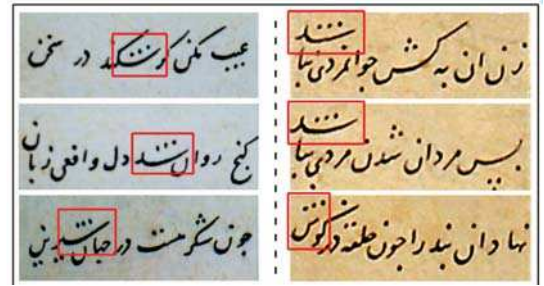 زن ان به کش جوانمردی نباشد
بس مردان شدن مردی نباشد
نهاد ان بند را جون حلقه در کوش
عیب مکن کر شکند در سخن
کنج روان شد دل وافعی زبان
جون شکر در شیرین